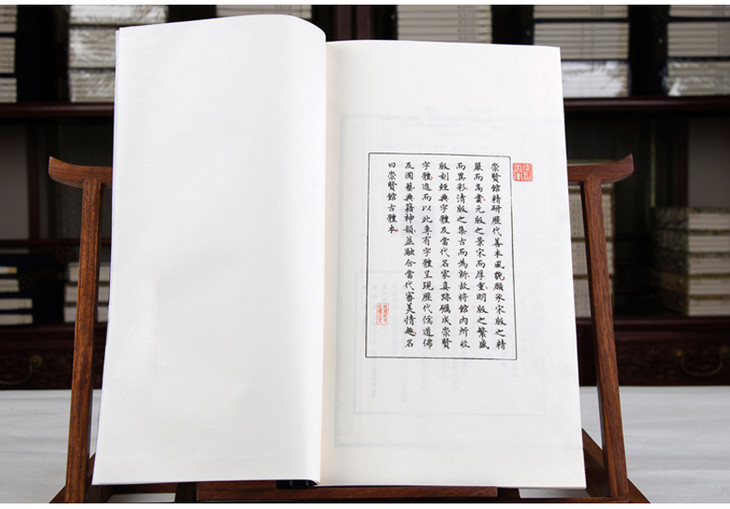 崇賢館精研歷代善本風貌願承宋版之精
嚴而高貴元版之景宋而厚重明版之繁盛
而異彩清版之集古而為新故將館內所收
版刻經典字體及當代名家真跡礪成崇賢
字體進而以此專有字體呈現歷代儒道佛
及國藝典籍神韻並融合當代審美情趣名
曰崇賢館古體本